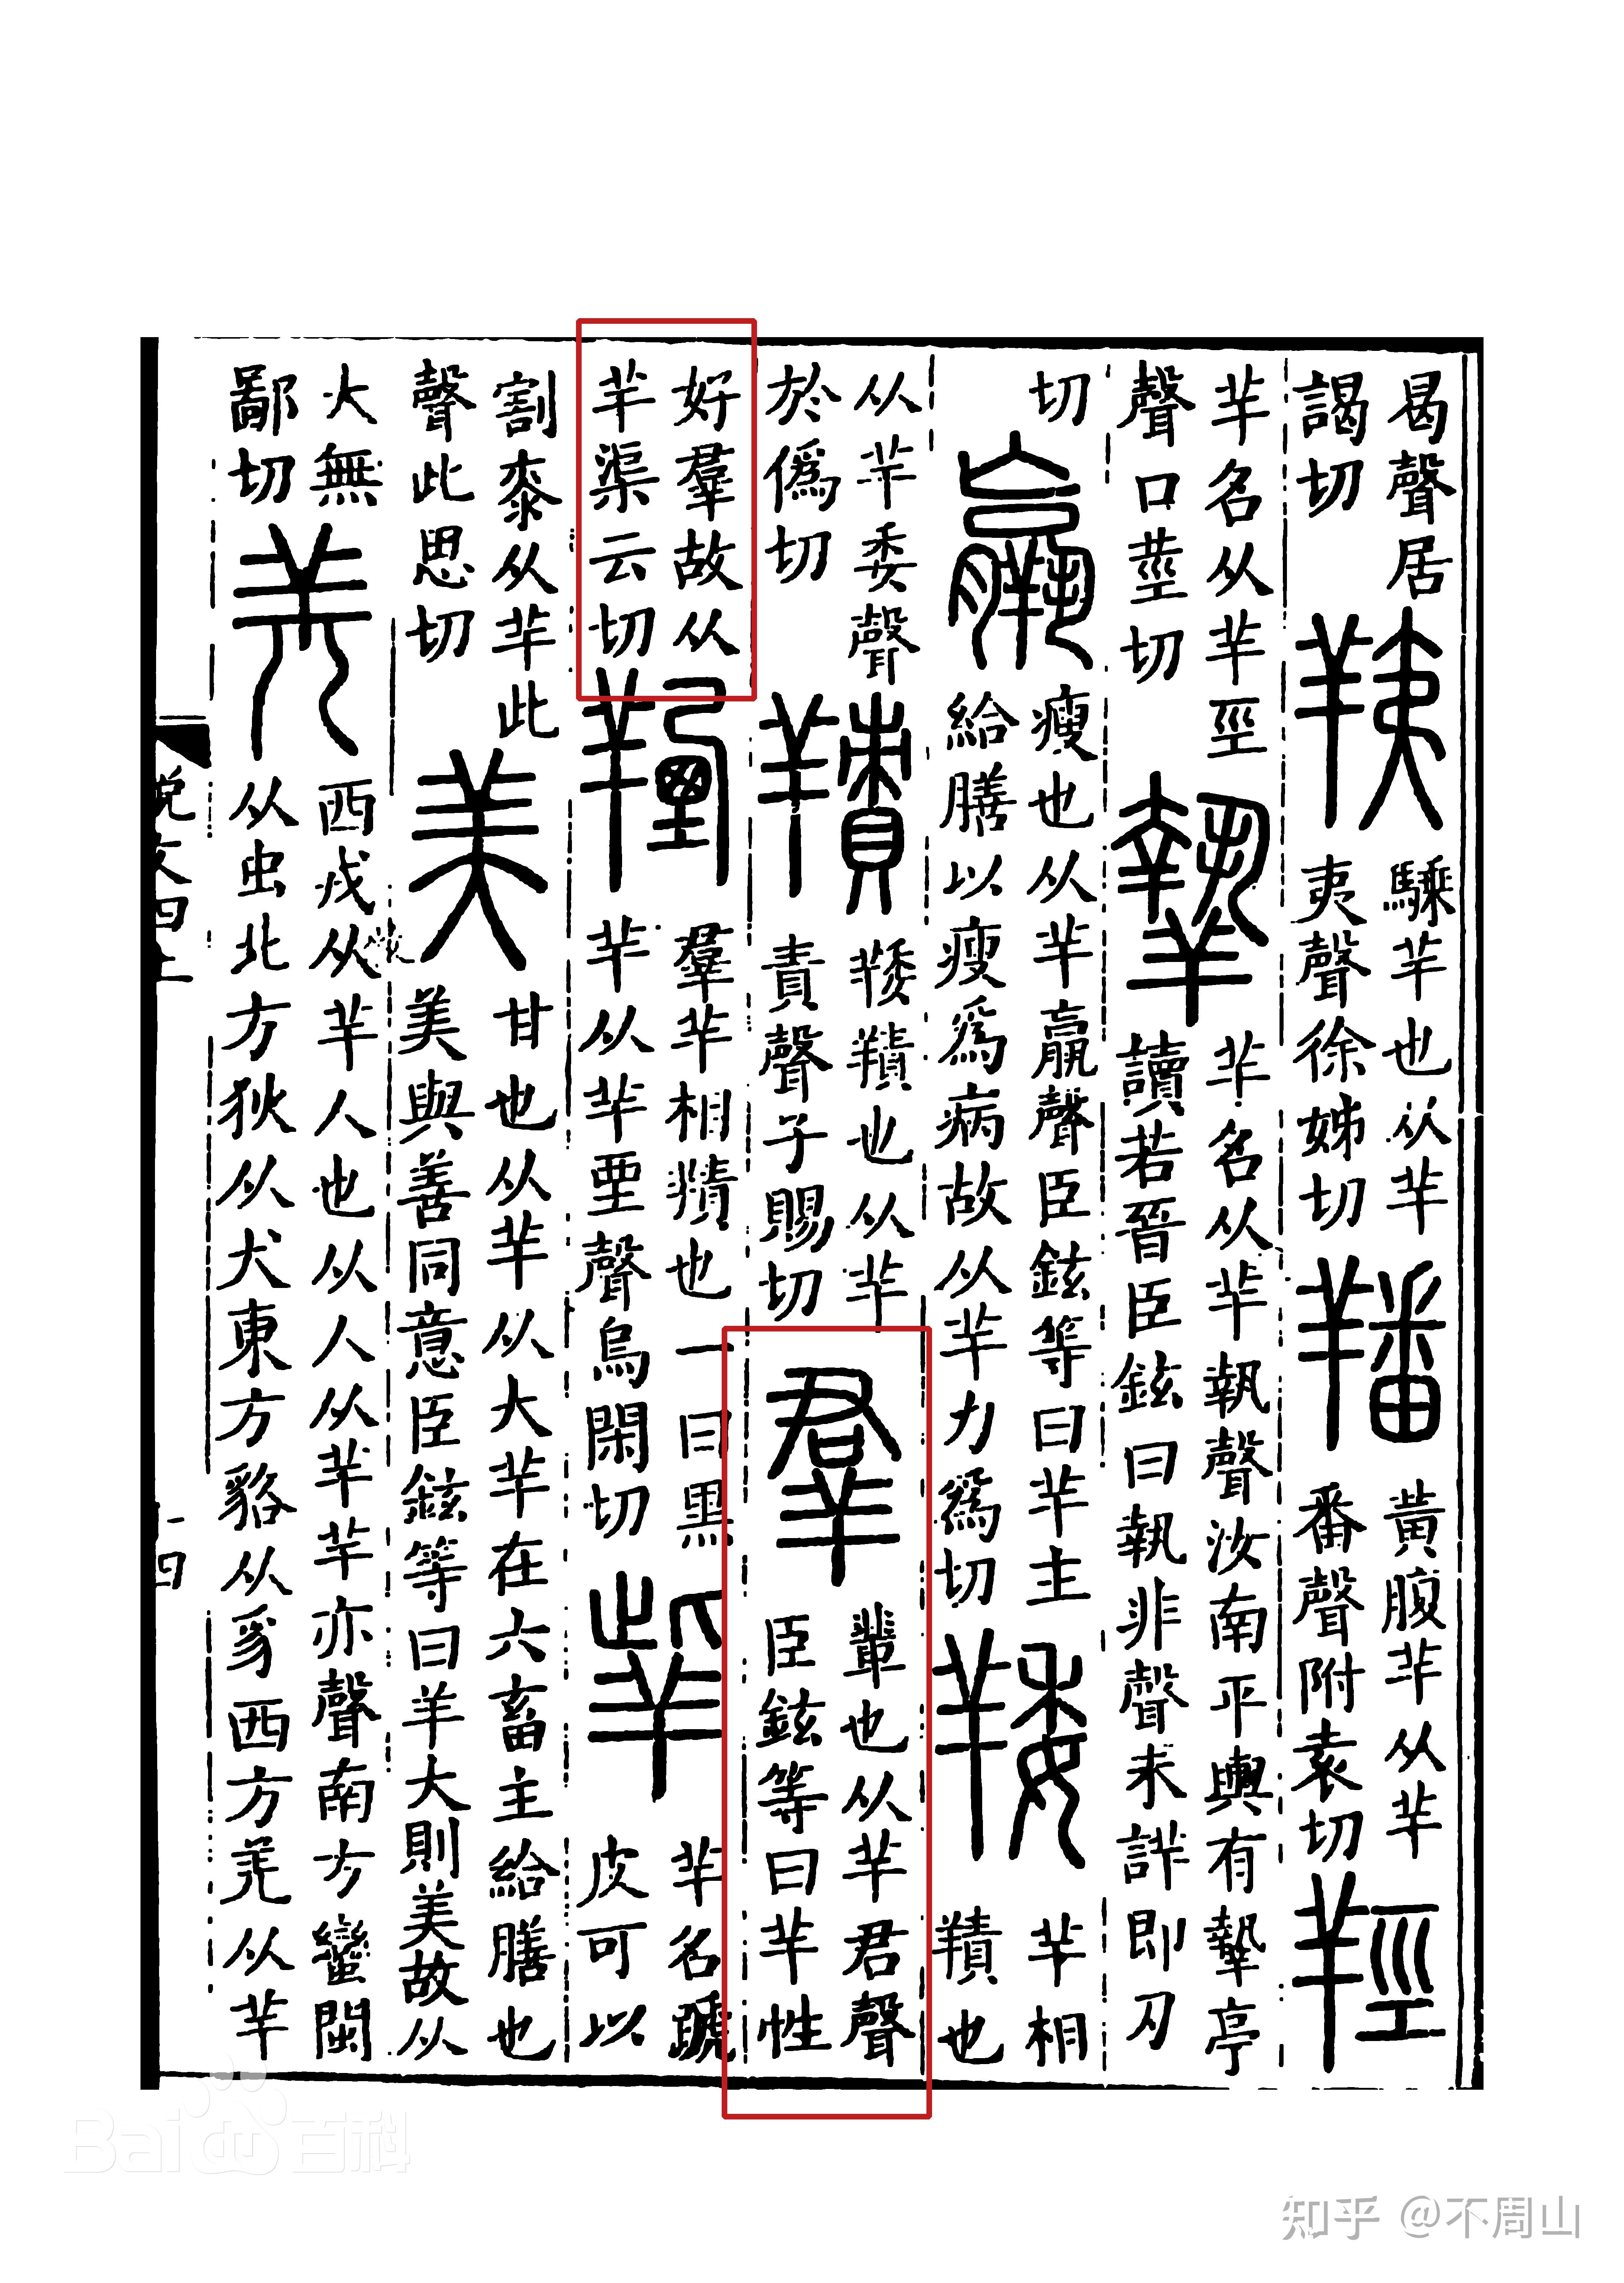 曷聲居
謁切
羠
騬羊也从羊
夷聲徐姊切
羳
黃腹羊从羊
番聲附袁切
羥
羊名从羊巠
聲口莖切
羊名从羊執聲汝南平輿有摯亭
讀若晉臣鉉曰執非聲未詳即刃
切
羸
瘦也从羊𣎆聲臣鉉等曰羊主
給膳以瘦爲病故从羊力爲切
䍴
羊相
䍽也
从羊委聲
於僞切
䍽
䍴䍽也从羊
責聲子賜切
羣
輩也从羊君聲
臣鉉等曰羊性
好羣故从
羊渠云切
𦎣
羣羊相䍽也一曰黑
羊从羊垔聲烏閑切
羊名蹏
皮可以
割桼从羊此
聲此思切
美
甘也从羊从大羊在六畜主給膳也
美與善同意臣鉉等曰羊大則美故从
大無
鄙切
羌
西戎从羊人也从人从羊羊亦聲南方蠻閩
从虫北方狄从犬東方貉从豸西方羌从羊
說文四上
十四
Bai百科
知乎 @不周山